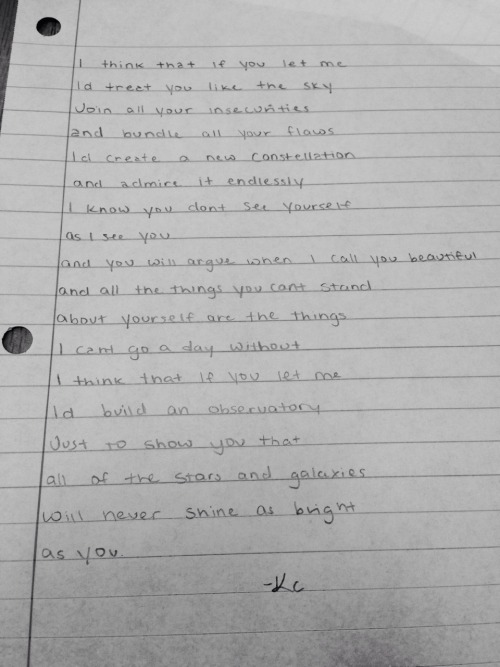 I think that if you let me
Id treat you like the sky
Join all your insecurities
and bundle all your flaws
Id create a new constellation
and admire it endlessly
I know you dont see yourself
as I see you
and you will argue when I call you beautiful
and all the things you cant stand
about yourself are the things
I cant go a day without
I think that if you let me
Id build an observatory
Just to show you that
all of the stars and galaxies
will never shine as bright
as you.
-Kc